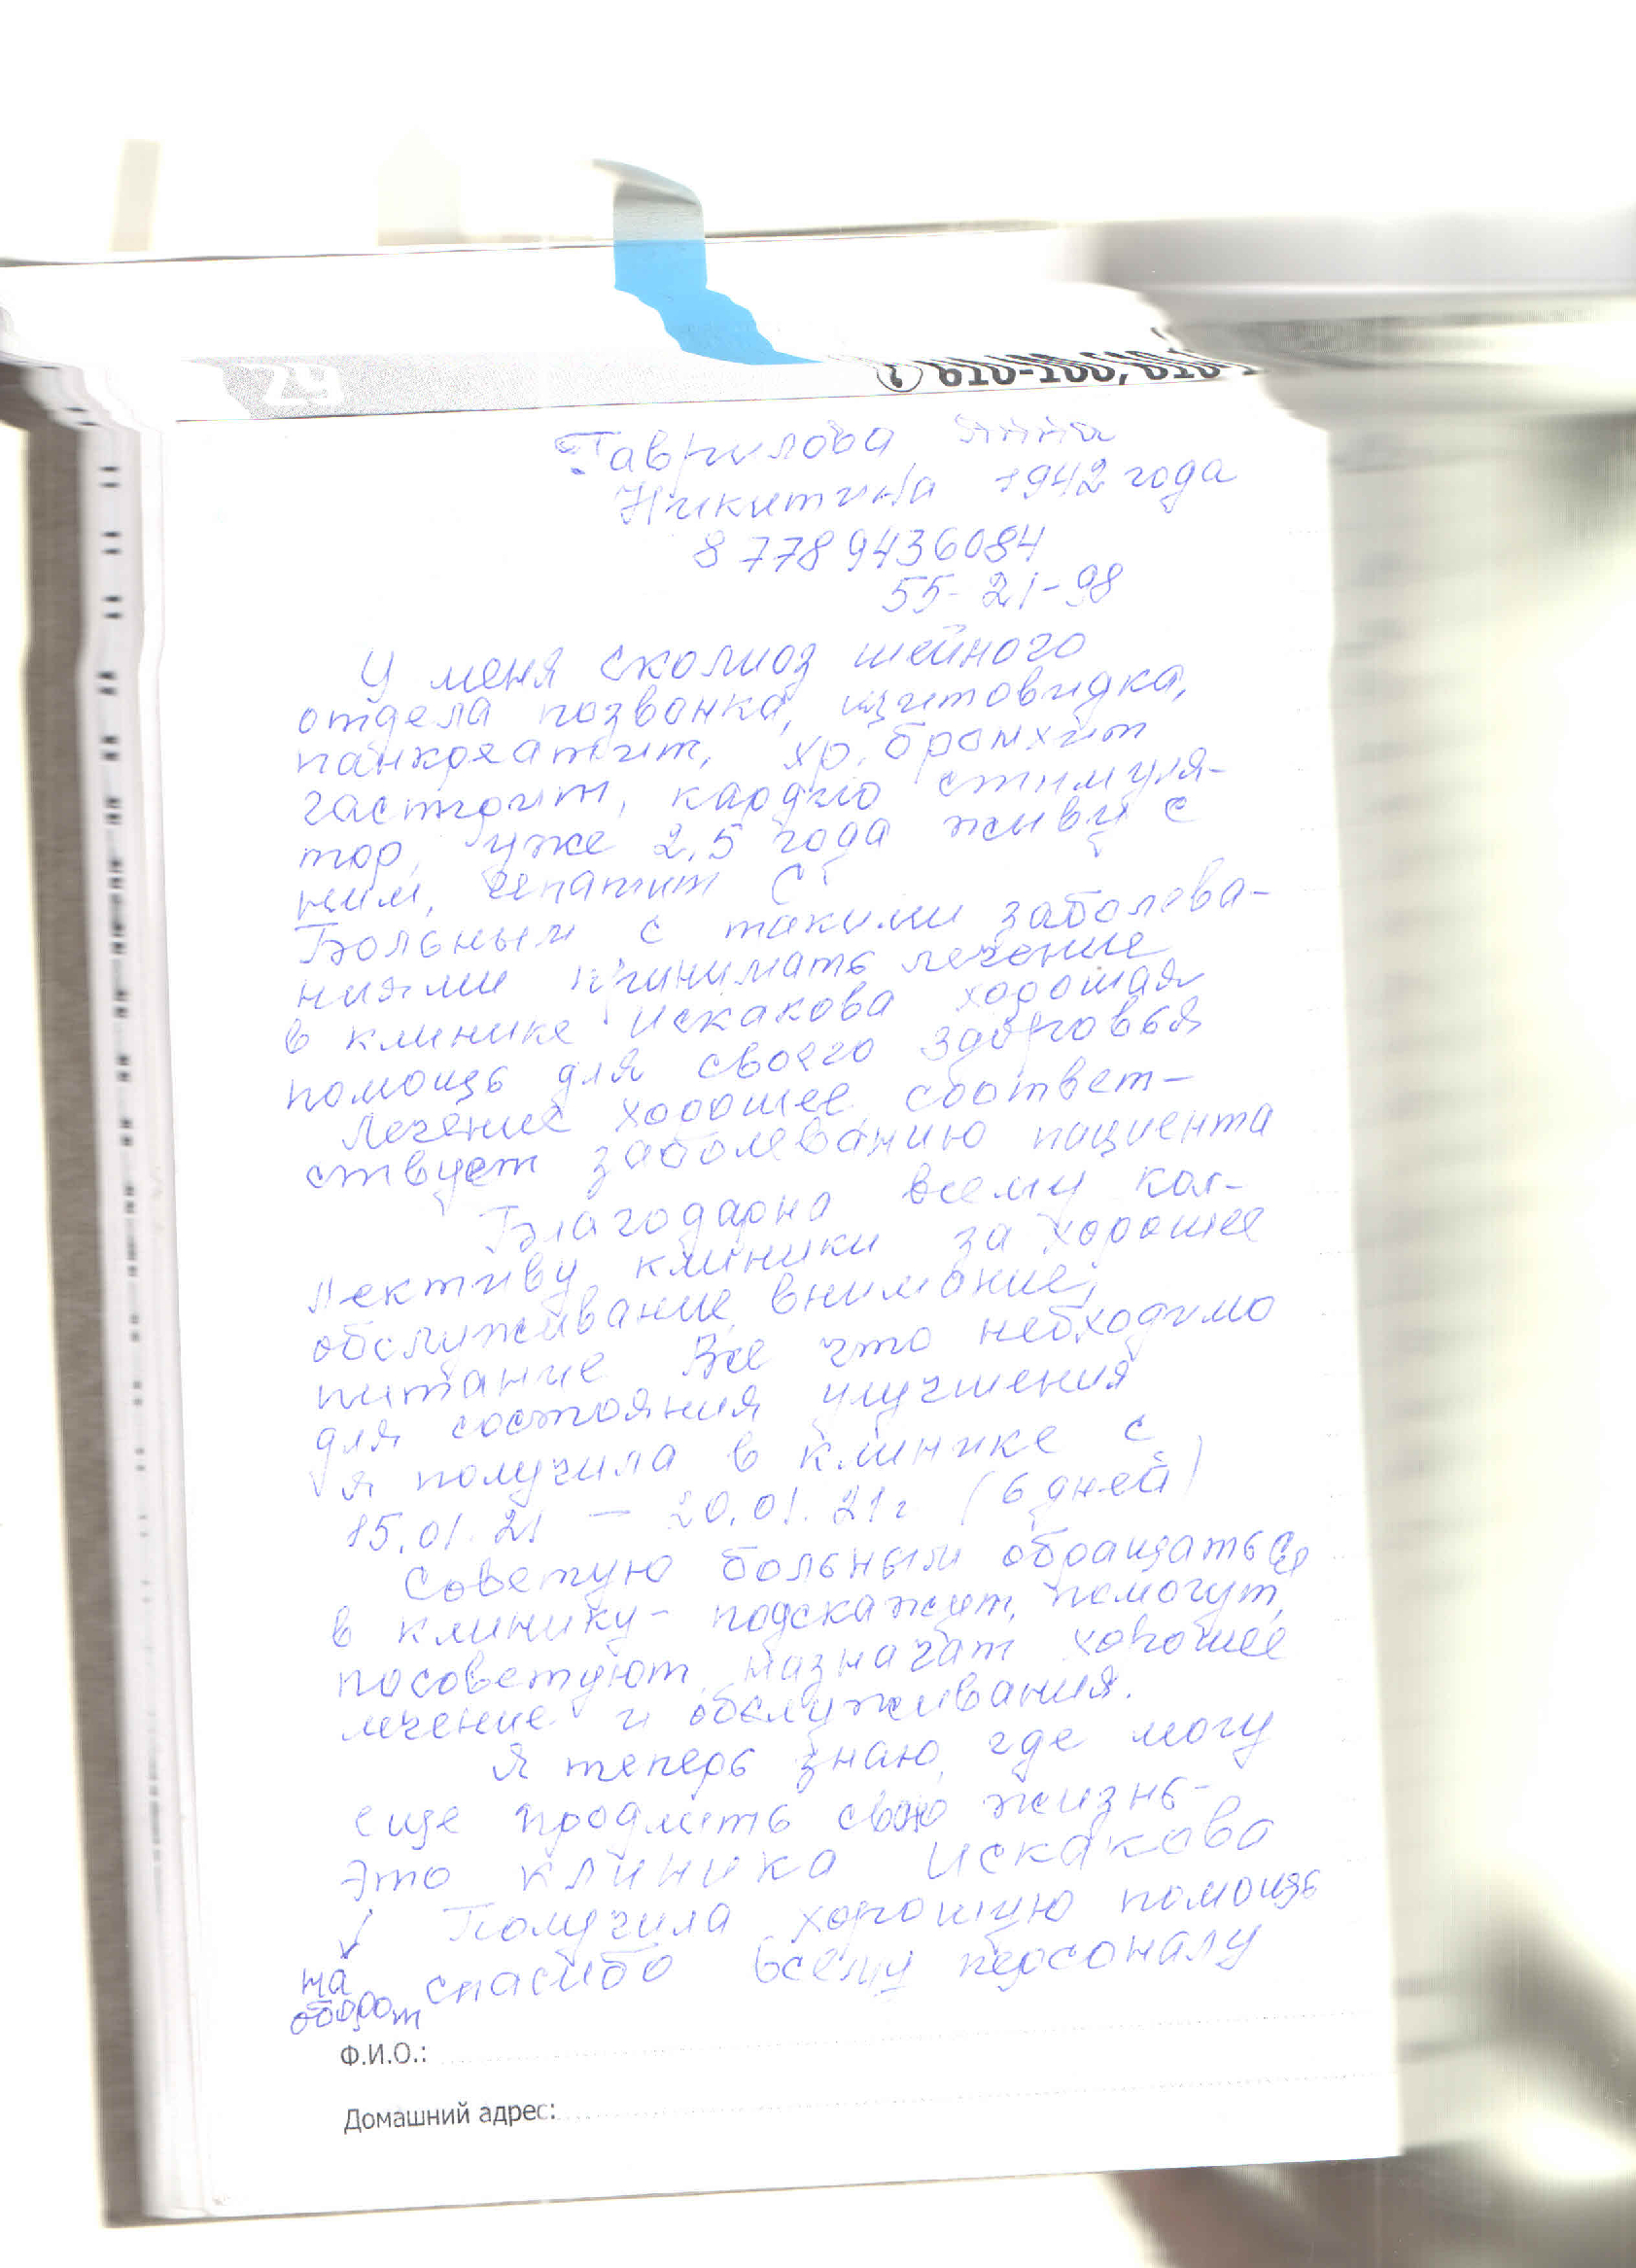 29
610-100, 610-1
Гаврилова Анна
Никитична 1942 года
8 778 9436084
55-21-98
У меня сколиоз шейного
отдела позвонка, щитовидка,
панкреатит, хр. бронхит
гастрит, кардио стимуля-
тор, уже 2,5 года живу с
ним, гепатит С
Больным с такими заболева-
ниями принимать лечение
в клинике Искакова хорошая
помощь для своего здоровья
Лечение хорошее, соответ-
ствует заболеванию пациента
Благодарна всему кол-
лективу клиники за хорошее
обслуживание, внимание,
питание Все что необходимо
для состояния улучшения
я получила в клинике с
15.01.21 — 20.01.21г (6 дней)
Советую больным обращаться
в клинику - подскажут, помогут,
посоветуют, назначат хорошее
лечение и обслуживания.
Я теперь знаю, где могу
еще продлить свою жизнь-
это клиника Искакова
Получила хорошую помощь
спасибо всему персоналу
↓
на
оборот
Ф.И.О.:
Домашний адрес: